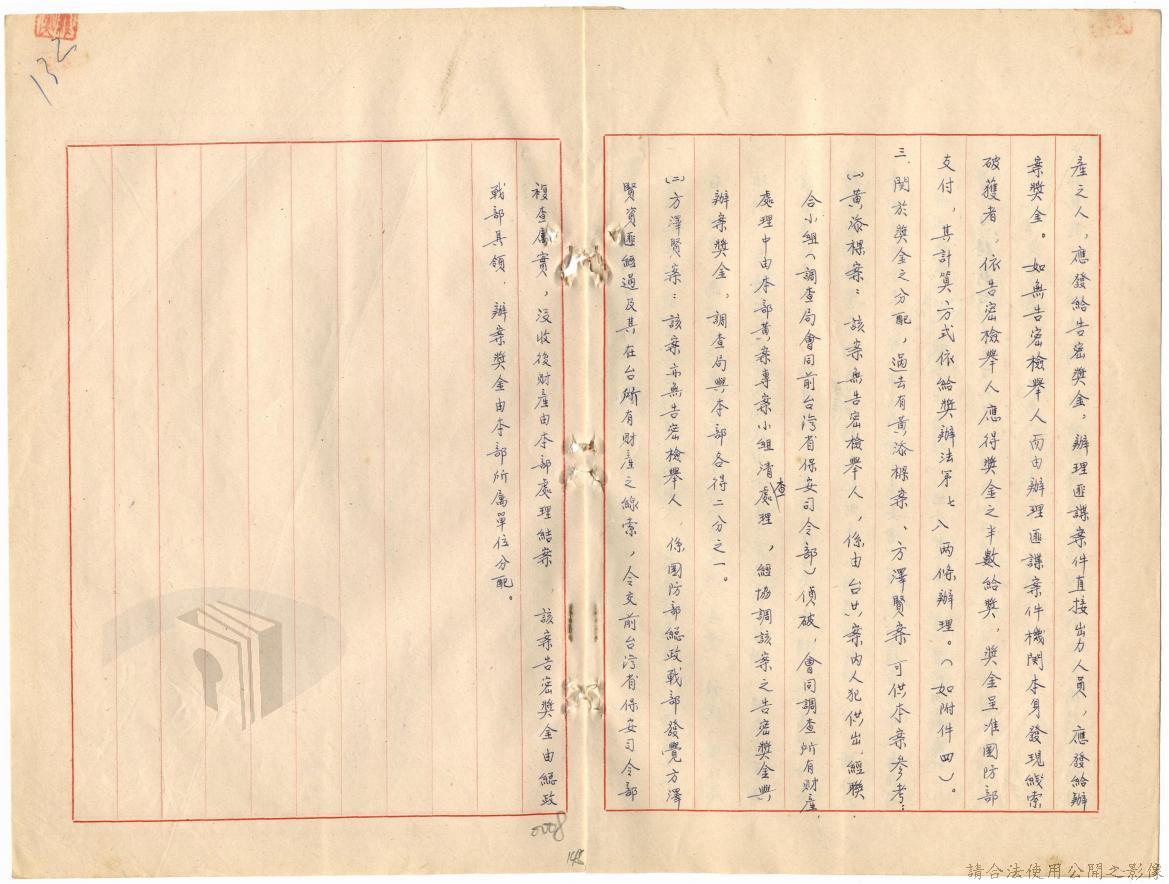 產之人，應發給告密奬金，辦理匪諜案件直接出力人員，應發給辦
案奬金。如無告密檢舉人而由辦理匪諜案件機関本身發現綫索
破獲者，依告密檢舉人應得奬金之半數給奬，奬金呈准國防部
支付，其計算方式依給奬辦法第七八兩條辦理。（如附件四）。
三、関於奬金之分配，過去有黃添樑案、方澤賢案可供本案參考：
㈠黃添樑案：該案無告密檢舉人，係由台共案內人犯供出，經聯
合小組（調查局會同前台湾省保安司令部）偵破，會同調查所有財產，
處理中由本部黃案專案小組清查處理，經協調該案之告密奬金與
辦案奬金，調查局與本部各得二分之一。
㈡方澤賢案：該案亦無告密檢舉人，係国防部總政戰部發覺方澤
賢資匪經過及其在台所有財產之線索，令交前台湾省保安司令部
複查屬實，没收後財產由本部處理結案，該案告密奬金由總政
戰部具領，辦案奬金由本部所属單位分配。
132
0008
148
請合法使用公開之影像